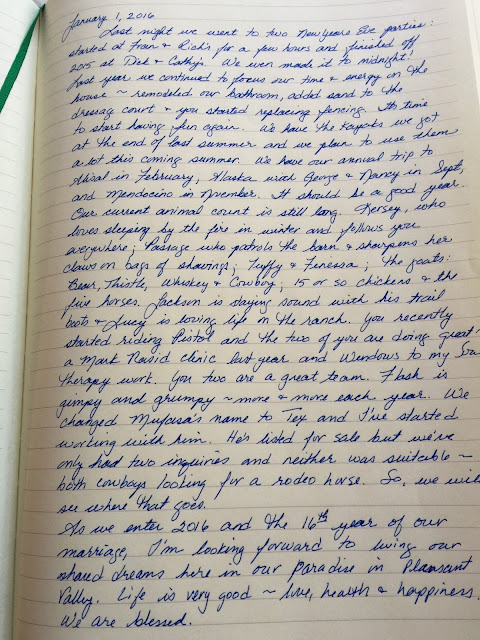 January 1, 2016
Last night we went to two New Years Eve parties:
started at Fran & Rich's for a few hours and finished off
2015 at Dick & Cathy's. We even made it to midnight!
Last year we continued to focus our time & energy on the
house ~ remodeled our bathroom, added sand to the
dressage court & you started replacing fencing. It's time
to start having fun again. We have the kayaks we got
at the end of last summer and we plan to use them
a lot this coming summer. We have our annual trip to
in February, Alaska with George & Nancy in Sept,
and Mendocino in November. It should be a good year.
Our current animal count is still long. Kersey, who
loves sleeping by the fire in winter and follows you
everywhere; Passage who patrols the barn & sharpens her
claws on bags of shavings; Tuffy & Finessa; the goats:
Bear, Thistle, Whiskey & Cowboy; 15 or so chickens & the
five horses. Jackson is staying sound with his trail
boots & Lucy is loving life on the ranch. You recently
started riding Pistol and the two of you are doing great!
a Mark Rashid clinic last year and to my
therapy work. You two are a great team. Flash is
gimpy and grumpy ~ more & more each year. We
changed Mufasa's name to Tex and I've started
working with him. He's listed for sale but we've
only had two inquiries and neither was suitable ~
both cowboys looking for a rodeo horse. So, we will
see where that goes.
As we enter 2016 and the 16th year of our
marriage, I'm looking forward to living our
shared dreams here in our paradise in Pleasant
Valley. Life is very good ~ love, health & happiness.
We are blessed.